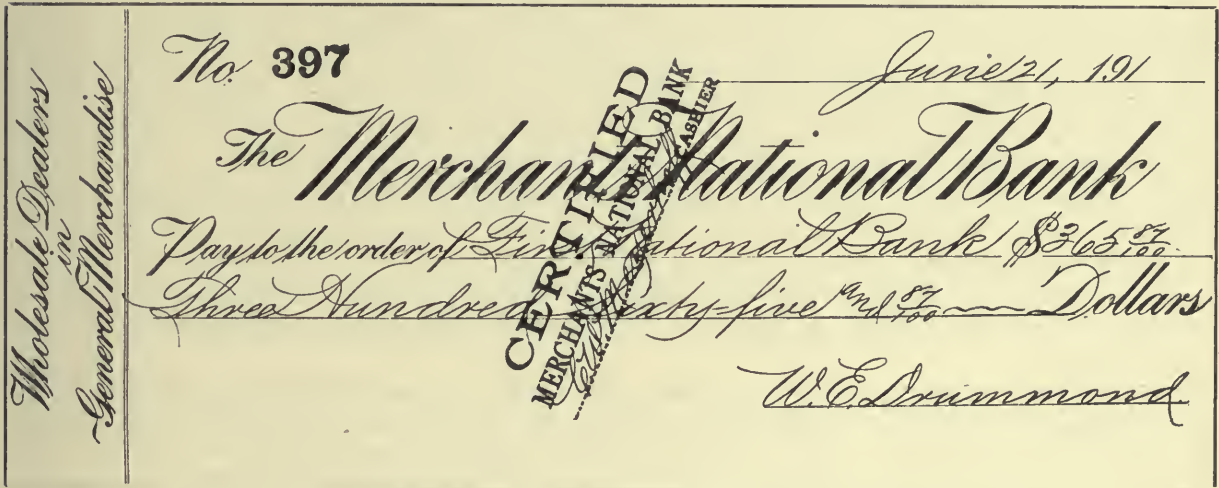 Wholesale Dealers
in
General Merchandise
No. 397
June 21, 191
The Merchants National Bank
Pay to the order of First National Bank $365 87/100
Three Hundred Sixty-five and 87/100 Dollars
W. E. Drummond
CERTIFIED
MERCHANTS NATIONAL BANK
CASHIER